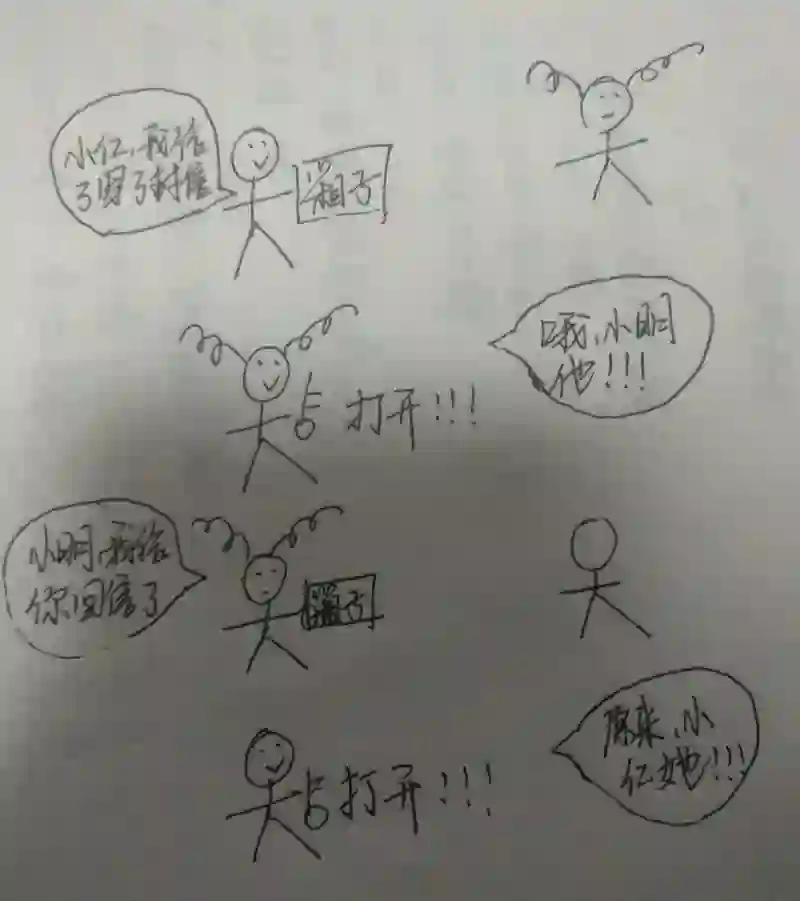 小红,我给
写了封信
箱子
哦,小明
他!!!
打开!!!
小明,我给
你回信了
原来,小
红她!!!
打开!!!